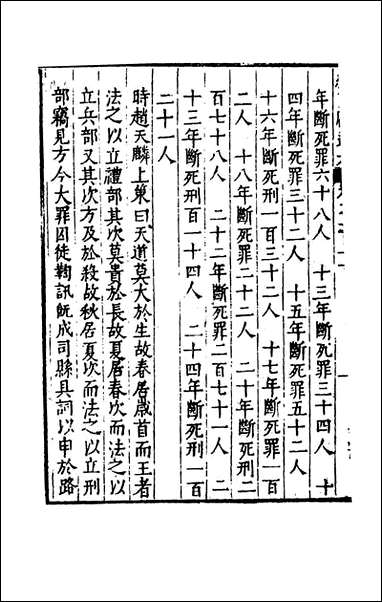 年斷死罪六十八人　十三年斷死罪三十四人　十
四年斷死罪三十二人　十五年斷死罪五十二人
十六年斷死刑一百三十二人　十七年斷死罪一百
二人　十八年斷死罪二十二人　二十年斷死刑二
百七十八人　二十二年斷死罪二百七十一人　二
十三年斷死刑一百一十四人　二十四年斷死刑一百
二十一人
時趙天麟上策曰天道莫大於生故春居歲首而王者
法之以立禮部其次莫貴於長故夏居春次而法之以
立兵部又其次方及於殺故秋居夏次而法之以立刑
部竊見方今大罪囚徒鞫訊旣成司縣具詞以申於路